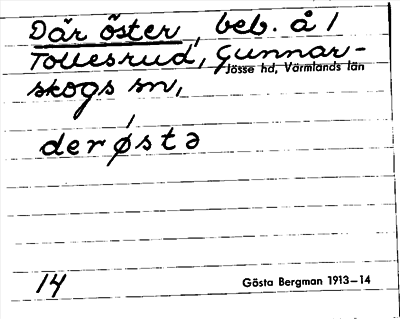 Där öster, beb. å 1
Tollesrud, Gunnar-
Jösse hd, Värmlands län
skogs sn,
derø´stə
14
Gösta Bergman 1913–14